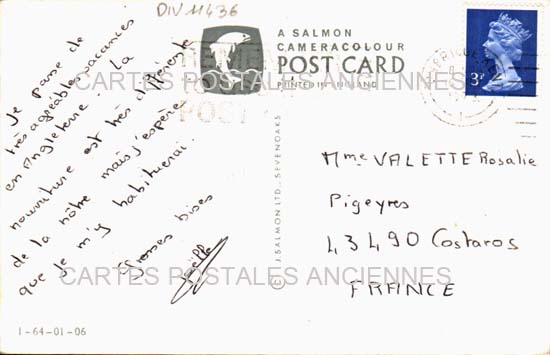 DIV 11436
A SALMON
CAMERACOLOUR
POST CARD
PRINTED IN ENGLAND
3P
Je passe de
très agréables vacances
en Angleterre. La
nourriture est très différente
de la nôtre mais j'espère
que je m'y habituerai.
Grosses bises
Mme VALETTE Rosalie
Pigeyres
43490 Costaros
FRANCE
© J. SALMON LTD., SEVENOAKS
1-64-01-06
CARTES POSTALES ANCIENNES
CARTES POSTALES ANCIENNES